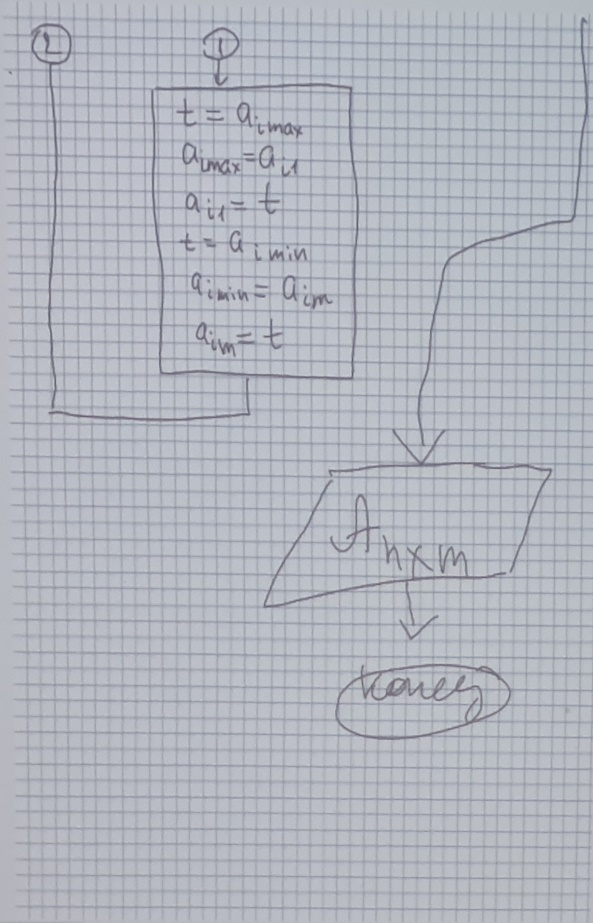 2
1
t = a_imax
a_imax = a_i1
a_i1 = t
t = a_imin
a_imin = a_im
a_im = t
A_n×m
конец